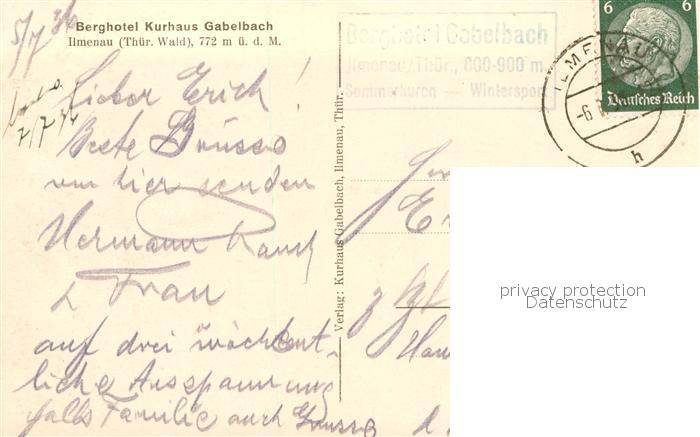 5/7 36
Berghotel Kurhaus Gabelbach
Ilmenau (Thür. Wald), 772 m ü. d. M.
Berghotel Gabelbach
Ilmenau/Thür., 800-900 m
Sommerkuren — Wintersport
6 6
Deutsches Reich
ILMENAU
-6.
h
7/7 36
Lieber Erich!
Beste Grüsse
von hier senden
Hermann Rauch
& Frau
auf drei wöchent-
liche Ausspannung
falls Familie auch Grüsse
Verlag: Kurhaus Gabelbach, Ilmenau, Thür.
privacy protection
Datenschutz